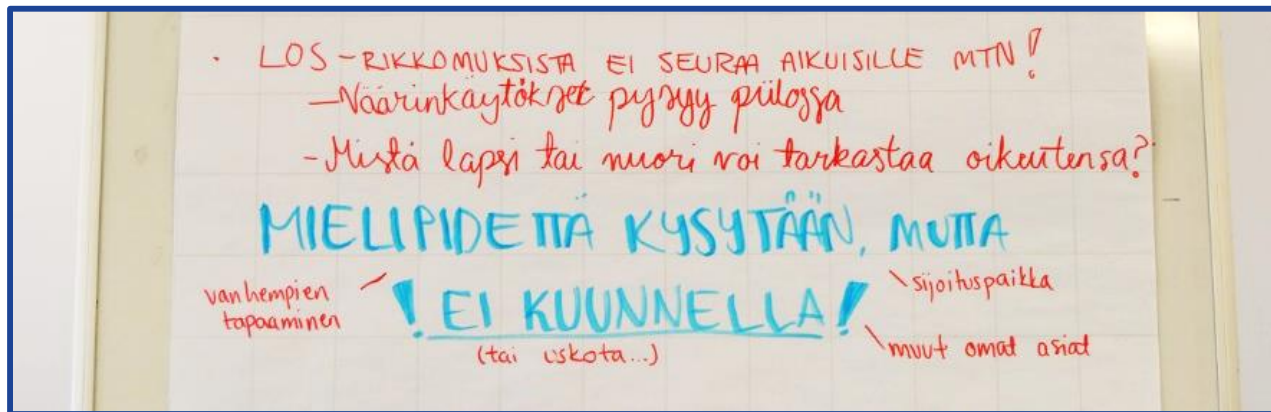 · LOS-RIKKOMUKSISTA EI SEURAA AIKUISILLE MTN!
- Väärinkäytökset pysyy piilossa
- Mistä lapsi tai nuori voi tarkastaa oikeutensa?
MIELIPIDETTÄ KYSYTÄÄN, MUTTA
! EI KUUNNELLA!
(tai uskota...)
vanhempien
tapaaminen
sijoituspaikka
muut omat asiat